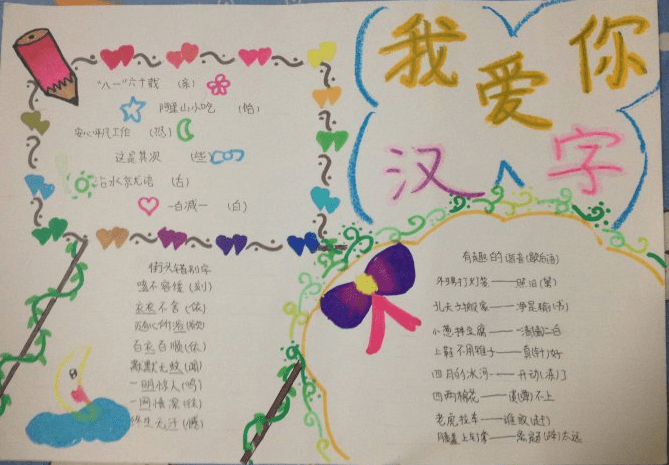 我爱你
汉字
"八一"六十载 (亲)
阿里山小吃 (怡)
安心平凡工作 (恐)
这是其次 (些)
治水無尤语 (舌)
一百减一 (白)
街头错别字
嗑不容缓 (刻)
衣衣不舍 (依)
随心所浴 (欲)
百衣百顺 (依)
默默无蚊 (闻)
一明惊人 (鸣)
一网情深 (往)
终生无汗 (憾)
有趣的谐音(歇后语)
外甥打灯笼——照旧(舅)
孔夫子搬家——净是输(书)
小葱拌豆腐——一清二白
上鞋不用锥子——真(针)好
四月的冰河——开动(冻)了
四两棉花——谈(弹)不上
老虎拉车——谁敢(赶)
膝盖上钉掌——离蹄(题)太远